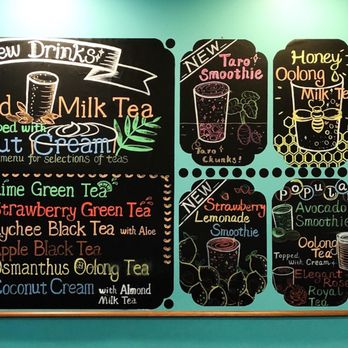 ew Drinks
d Milk Tea
ped with
ut Cream
menu for selections of teas
ime Green Tea
Strawberry Green Tea
ychee Black Tea with Aloe
Apple Black Tea
Osmanthus Oolong Tea
Coconut Cream with Almond
Milk Tea
NEW
Taro
Smoothie
Taro
Chunks!
Honey
Oolong
Milk Tea
NEW
Strawberry
Lemonade
Smoothie
Popula
Avocado
Smoothie
Oolong
Tea
Topped
with Cream
Elegant
Rose
Royal
Tea